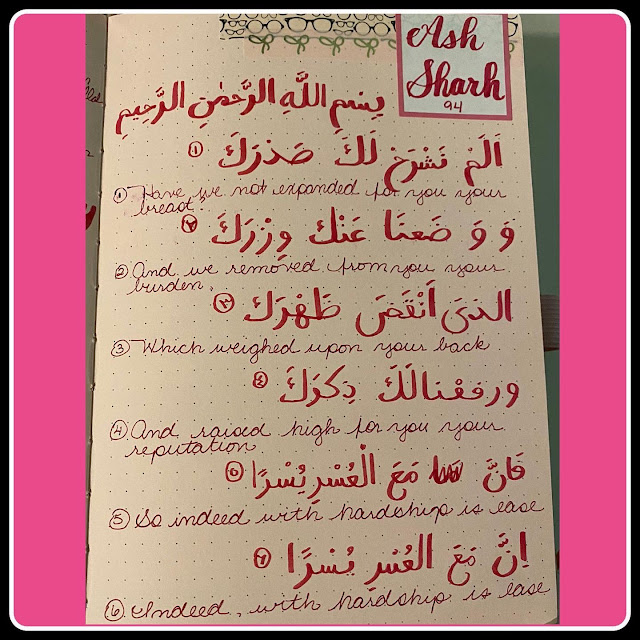 Ash
Sharh
94
بِسْمِ اللَّهِ الرَّحْمٰنِ الرَّحِيمِ
اَلَمْ نَشْرَحْ لَكَ صَدْرَكَ ١
① Have we not expanded for you your
breast?
وَ وَ ضَعنَا عَنْكَ وِزْرَكَ ٢
② And we removed from you your
burden.
الذىَ اَنْقَضَ ظَهْرَكَ ٣
③ Which weighed upon your back
ورفعْنالَكَ ذِكرَكَ ٤
④ And raised high for you your
reputation
فَانَّ مَعَ الْعُسْرِ يُسْرًا ٥
⑤ So indeed with hardship is ease
اِنَّ مَعَ العُسْرِ يُسْرًا ٦
⑥ Indeed, with hardship is ease